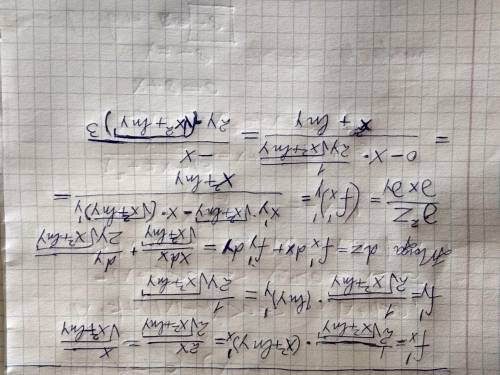 f'ₓ = 1/(2√(x²+lny)) · (x²+lny)'ₓ = 2x/(2√(x²+lny)) = x/√(x²+lny)
f'y = 1/(2√(x²+lny)) · (lny)'y = 1/(2y√(x²+lny))
Тогда dz = f'ₓdx + f'ydy = xdx/√(x²+lny) + dy/(2y√(x²+lny))
∂²z/∂x∂y = (f'ₓ)'y = (x'y√(x²+lny) - x·(√(x²+lny))'y)/(x²+lny) =
= (0 - x · 1/(2y√(x²+lny)))/(x²+lny) = -x/(2y·(√(x²+lny))³)